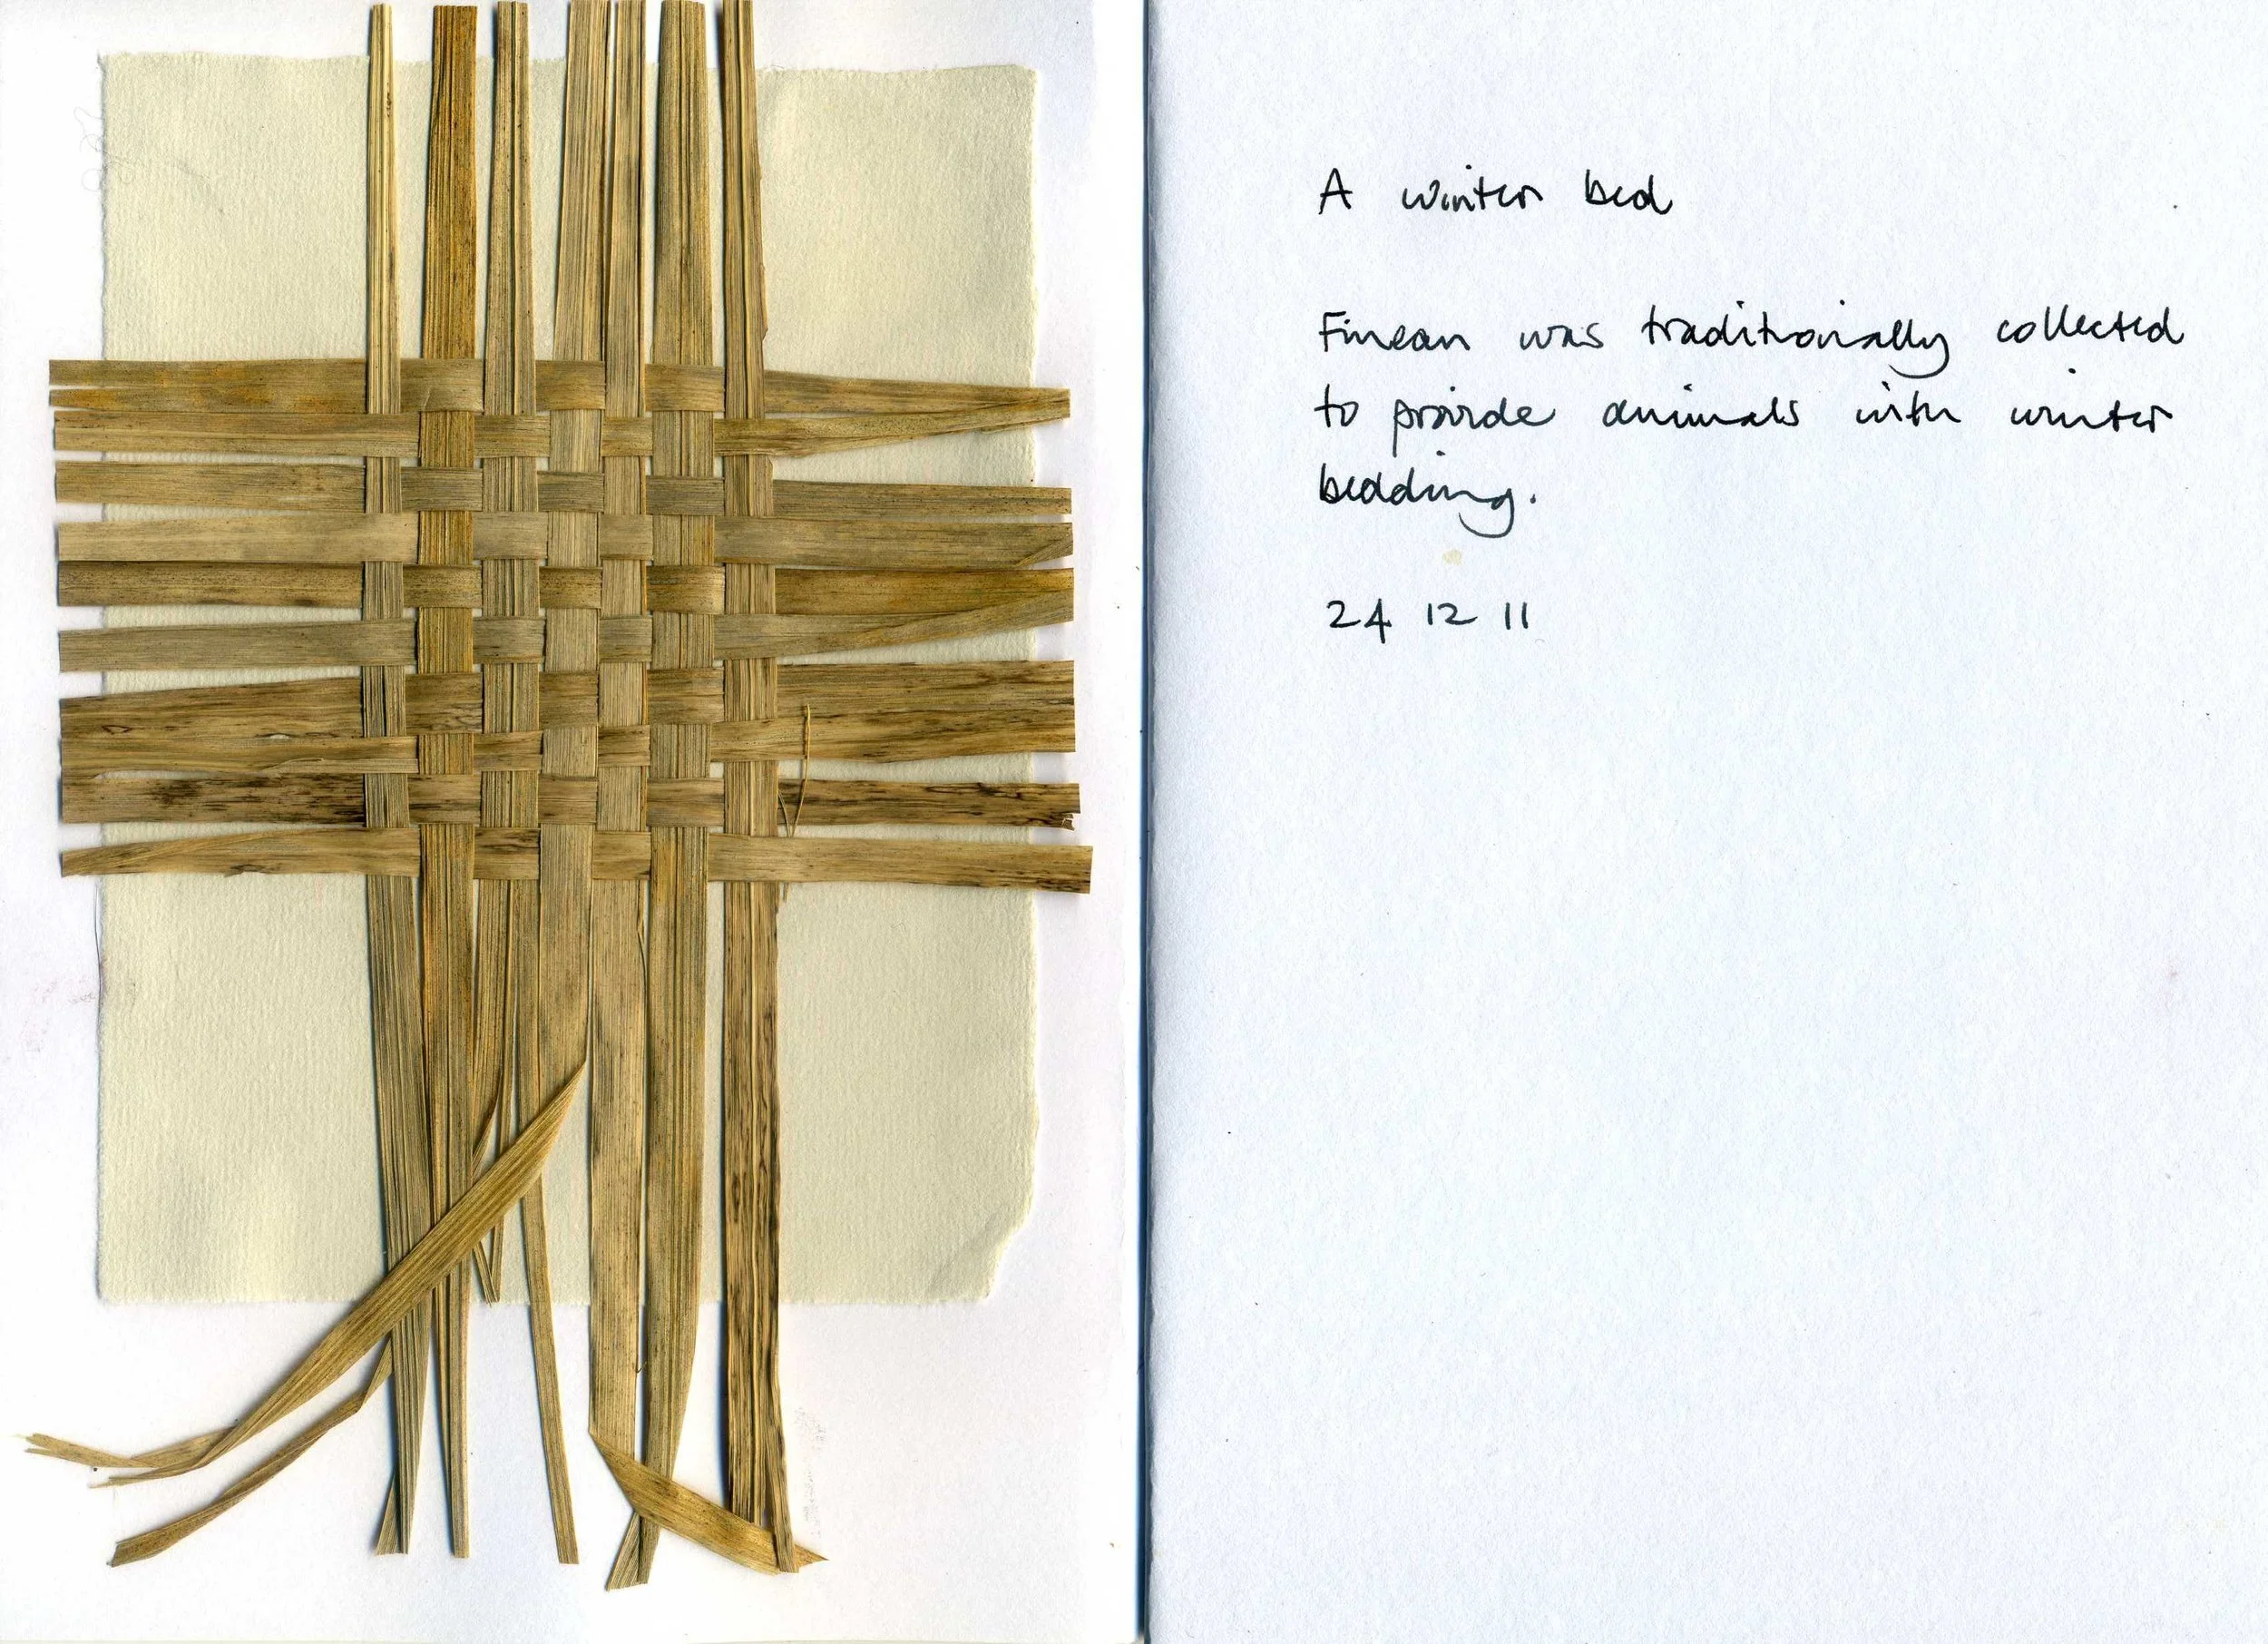 A winter bed
Finean was traditionally collected
to provide animals with winter
bedding.
24 12 11